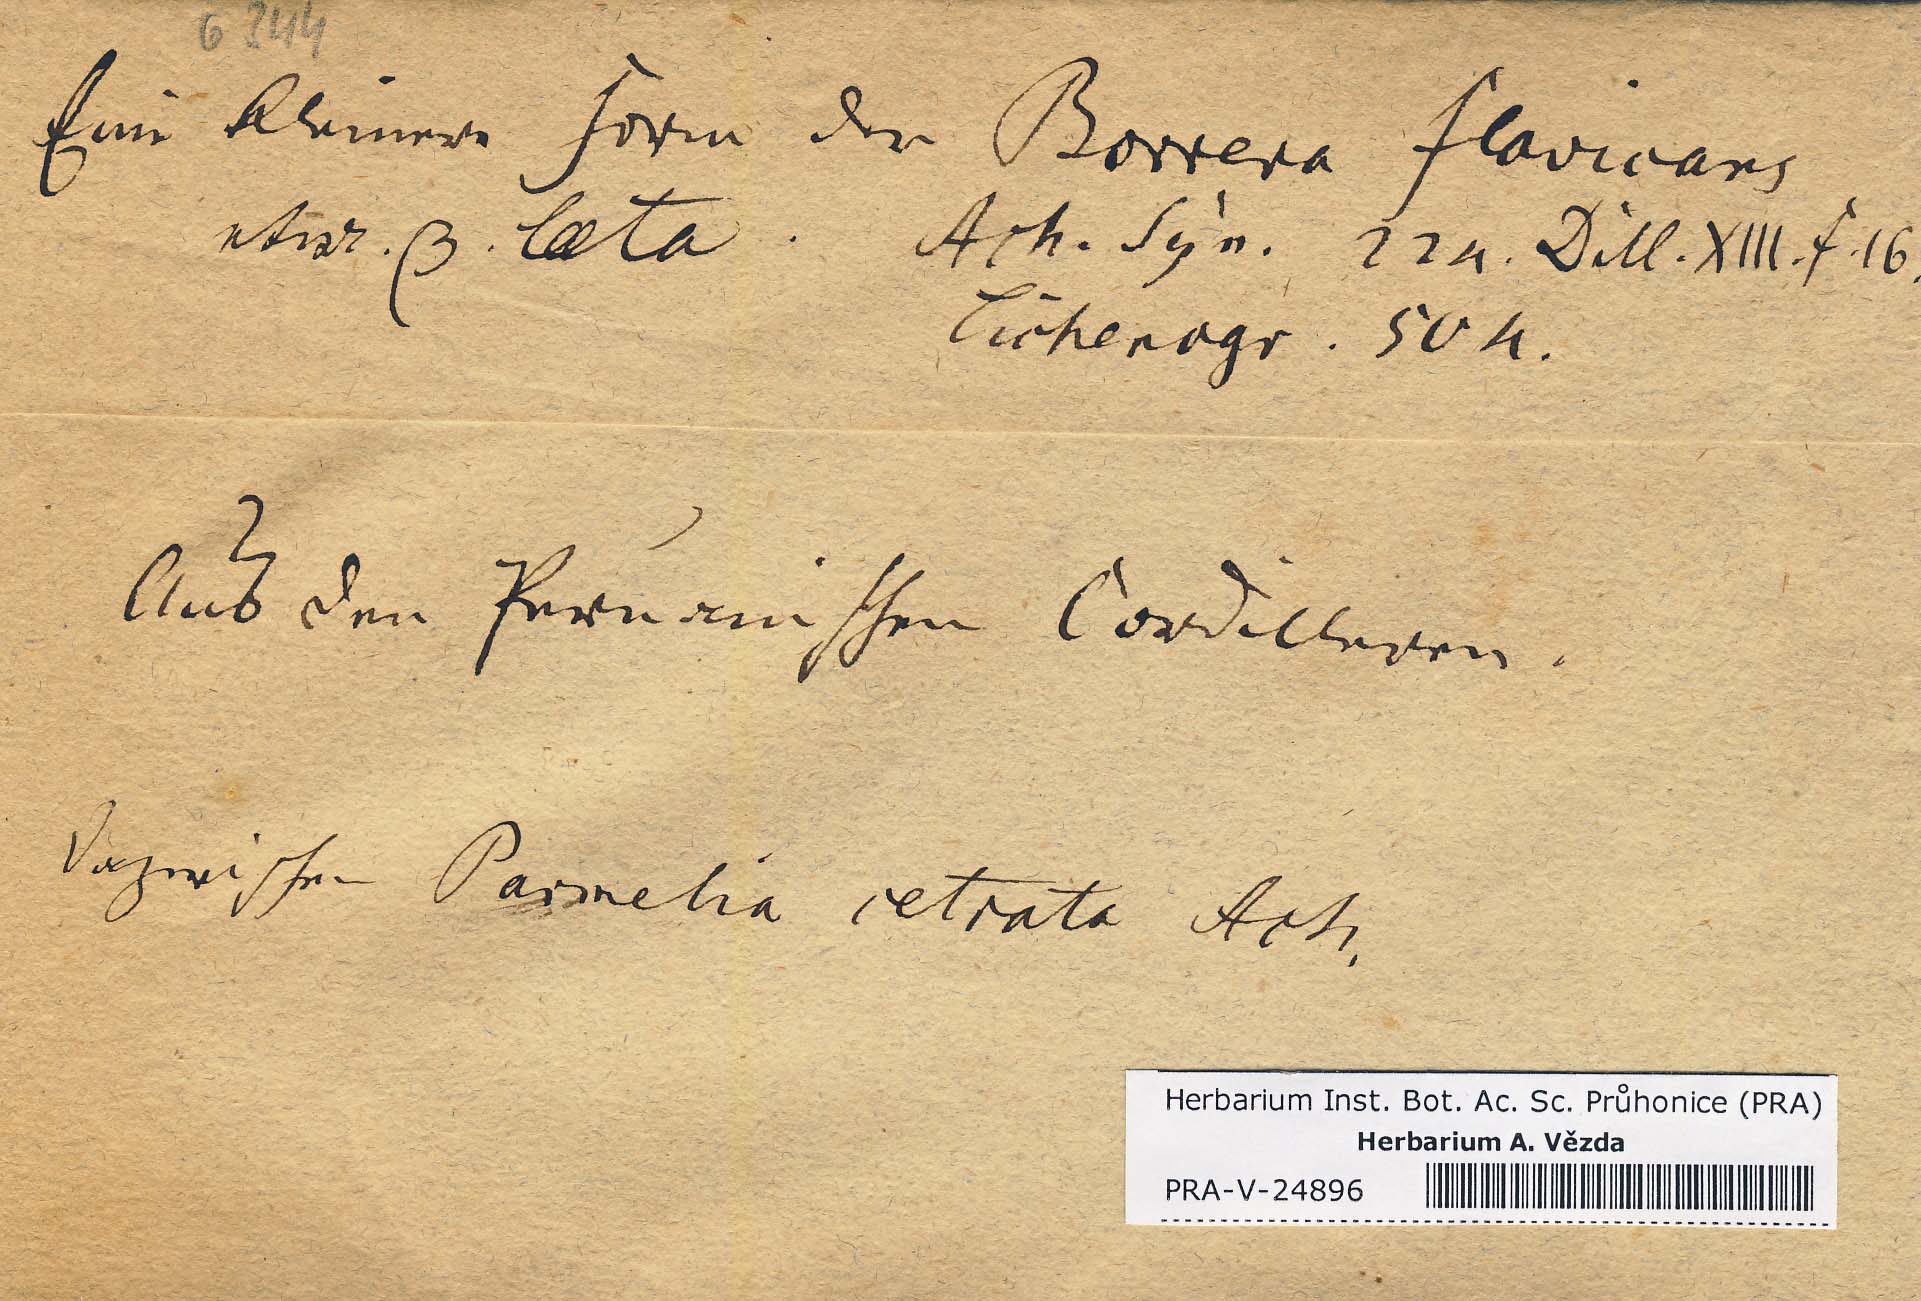 6344
Eine kleinere Form der Borrera flavicans
etwa β. læta. Ach. Syn. 224. Dill. XIII. f. 16.
Lichenogr. 504.
Aus den Peruanischen Cordilleren.
Dazwischen Parmelia cetrata Ach.
Herbarium Inst. Bot. Ac. Sc. Průhonice (PRA)
Herbarium A. Vězda
PRA-V-24896